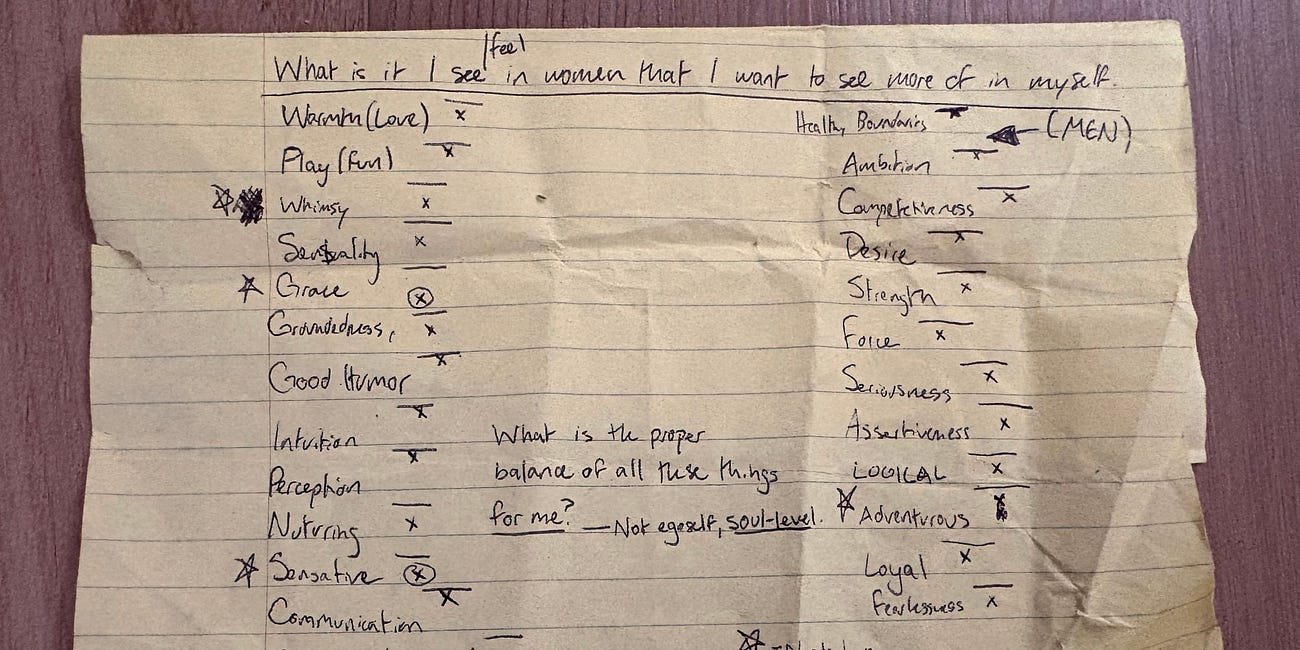 /feel
What is it I see in women that I want to see more of in myself.
Warmth (Love) x
Play (fun) x
Whimsy x
Sensuality x
Grace x
Groundedness, x
Good Humor x
Intuition x
Perception x
Nuturing x
Sensative x
Communication x
What is the proper
balance of all these things
for me? — Not egoself, soul-level.
Healthy Boundaries x
(MEN)
Ambition x
Competetiveness x
Desire x
Strength x
Force x
Seriousness x
Assertiveness x
LOGICAL x
Adventurous x
Loyal x
Fearlessness x